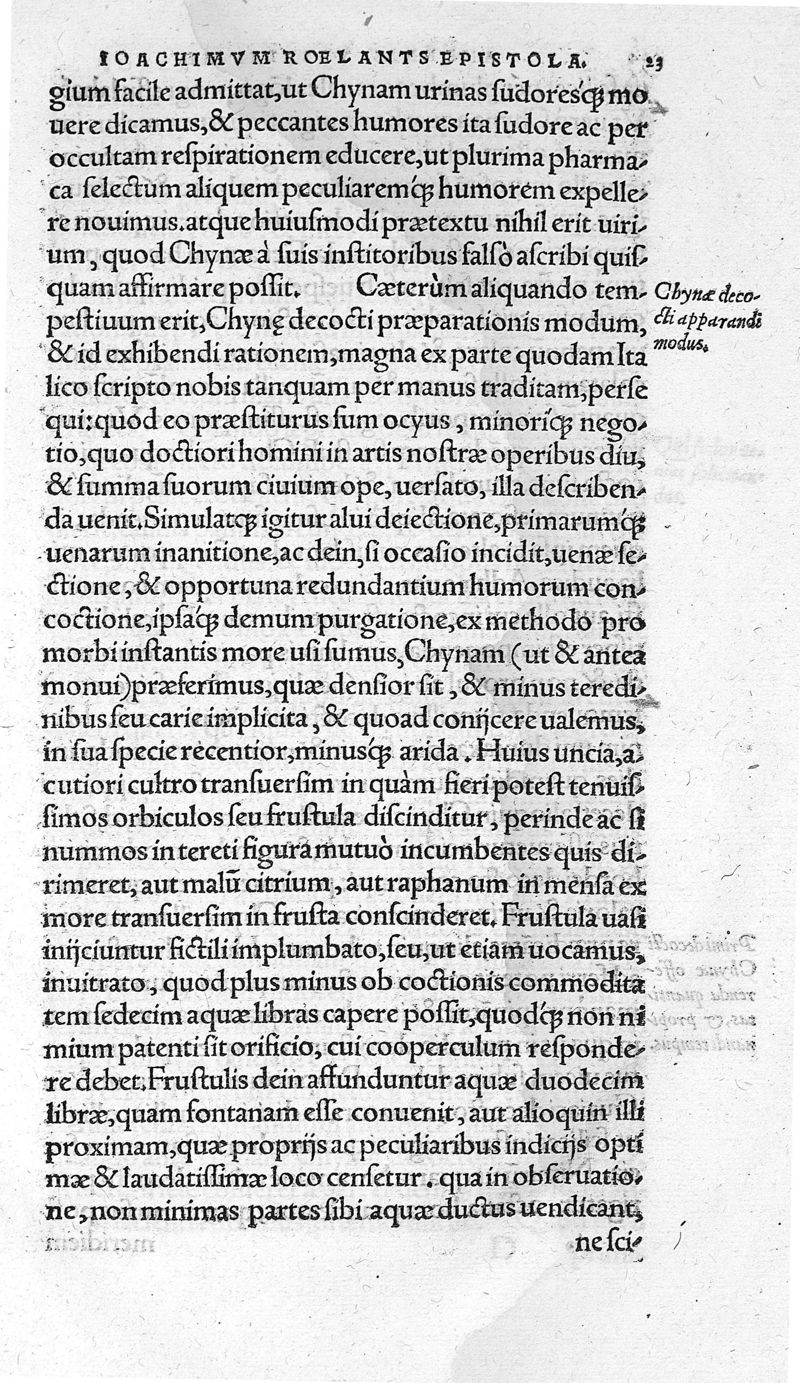 IOACHIMVM ROELANTS EPISTOLA. 23
gium facile admittat, ut Chynam urinas sudoresq́; mo
uere dicamus, & peccantes humores ita sudore ac per
occultam respirationem educere, ut plurima pharma-
ca selectum aliquem peculiaremq́; humorem expelle-
re nouimus. atque huiusmodi prætextu nihil erit uiri-
um, quod Chynæ à suis institoribus falsò ascribi quis-
quam affirmare possit. Cæterùm aliquando tem-
pestiuum erit, Chynę decocti præparationis modum,
& id exhibendi rationem, magna ex parte quodam Ita
lico scripto nobis tanquam per manus traditam, perse
qui: quod eo præstiturus sum ocyus, minoriq́; nego-
tio, quo doctiori homini in artis nostræ operibus diu,
& summa suorum ciuium ope, uersato, illa describen-
da uenit. Simulatq; igitur alui deiectione, primarumq́;
uenarum inanitione, ac dein, si occasio incidit, uenæ se-
ctione, & opportuna redundantium humorum con-
coctione, ipsaq́; demum purgatione, ex methodo pro
morbi instantis more usi sumus, Chynam (ut & antea
monui) præferimus, quæ densior sit, & minus teredi-
nibus seu carie implicita, & quoad conijcere ualemus,
in sua specie recentior, minusq́; arida. Huius uncia, a
cutiori cultro transuersim in quàm fieri potest tenuis-
simos orbiculos seu frustula discinditur, perinde ac si
nummos in tereti figura mutuò incumbentes quis di-
rimeret, aut malũ citrium, aut raphanum in mensa ex
more transuersim in frusta conscinderet. Frustula uasi
inijciuntur fictili implumbato, seu, ut etiam uocamus,
inuitrato, quod plus minus ob coctionis commodita
tem sedecim aquæ libras capere possit, quodq́; non ni
mium patenti sit orificio, cui cooperculum responde-
re debet. Frustulis dein affunduntur aquæ duodecim
libræ, quam fontanam esse conuenit, aut alioquin illi
proximam, quæ proprijs ac peculiaribus indicijs opti
mæ & laudatissimæ loco censetur. qua in obseruatio-
ne, non minimas partes sibi aquæ ductus uendicant,
ne sci-
Chynæ deco-
cti apparandi
modus.